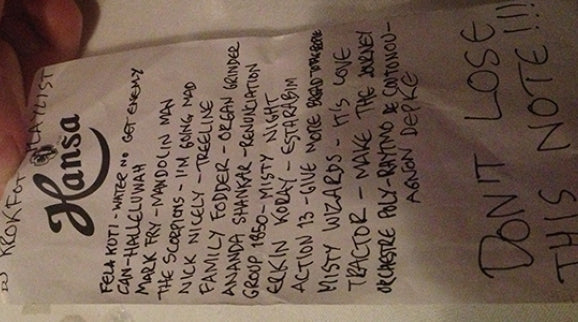 DJ KROKFOT PLAYLIST
Hansa
FELA KUTI - WATER NO GET ENEMY
CAN - HALLELUWAH
MARK FRY - MANDOLIN MAN
THE SCORPIONS - I'M GOING MAD
NICK NICELY - TREELINE
FAMILY FODDER - ORGAN GRINDER
ANANDA SHANKAR - RENUNCIATION
GROUP 1850 - MISTY NIGHT
ERKIN KORAY - ESTARABIM
ACTION 13 - GIVE MORE BREAD TO THE PEOPLE
MISTY WIZARDS - IT'S LOVE
TRACTOR - MAKE THE JOURNEY
ORCHESTRE POLY-RHYTMO DE COTONOU -
AGNON DEPKE
DON'T LOSE
THIS NOTE!!!